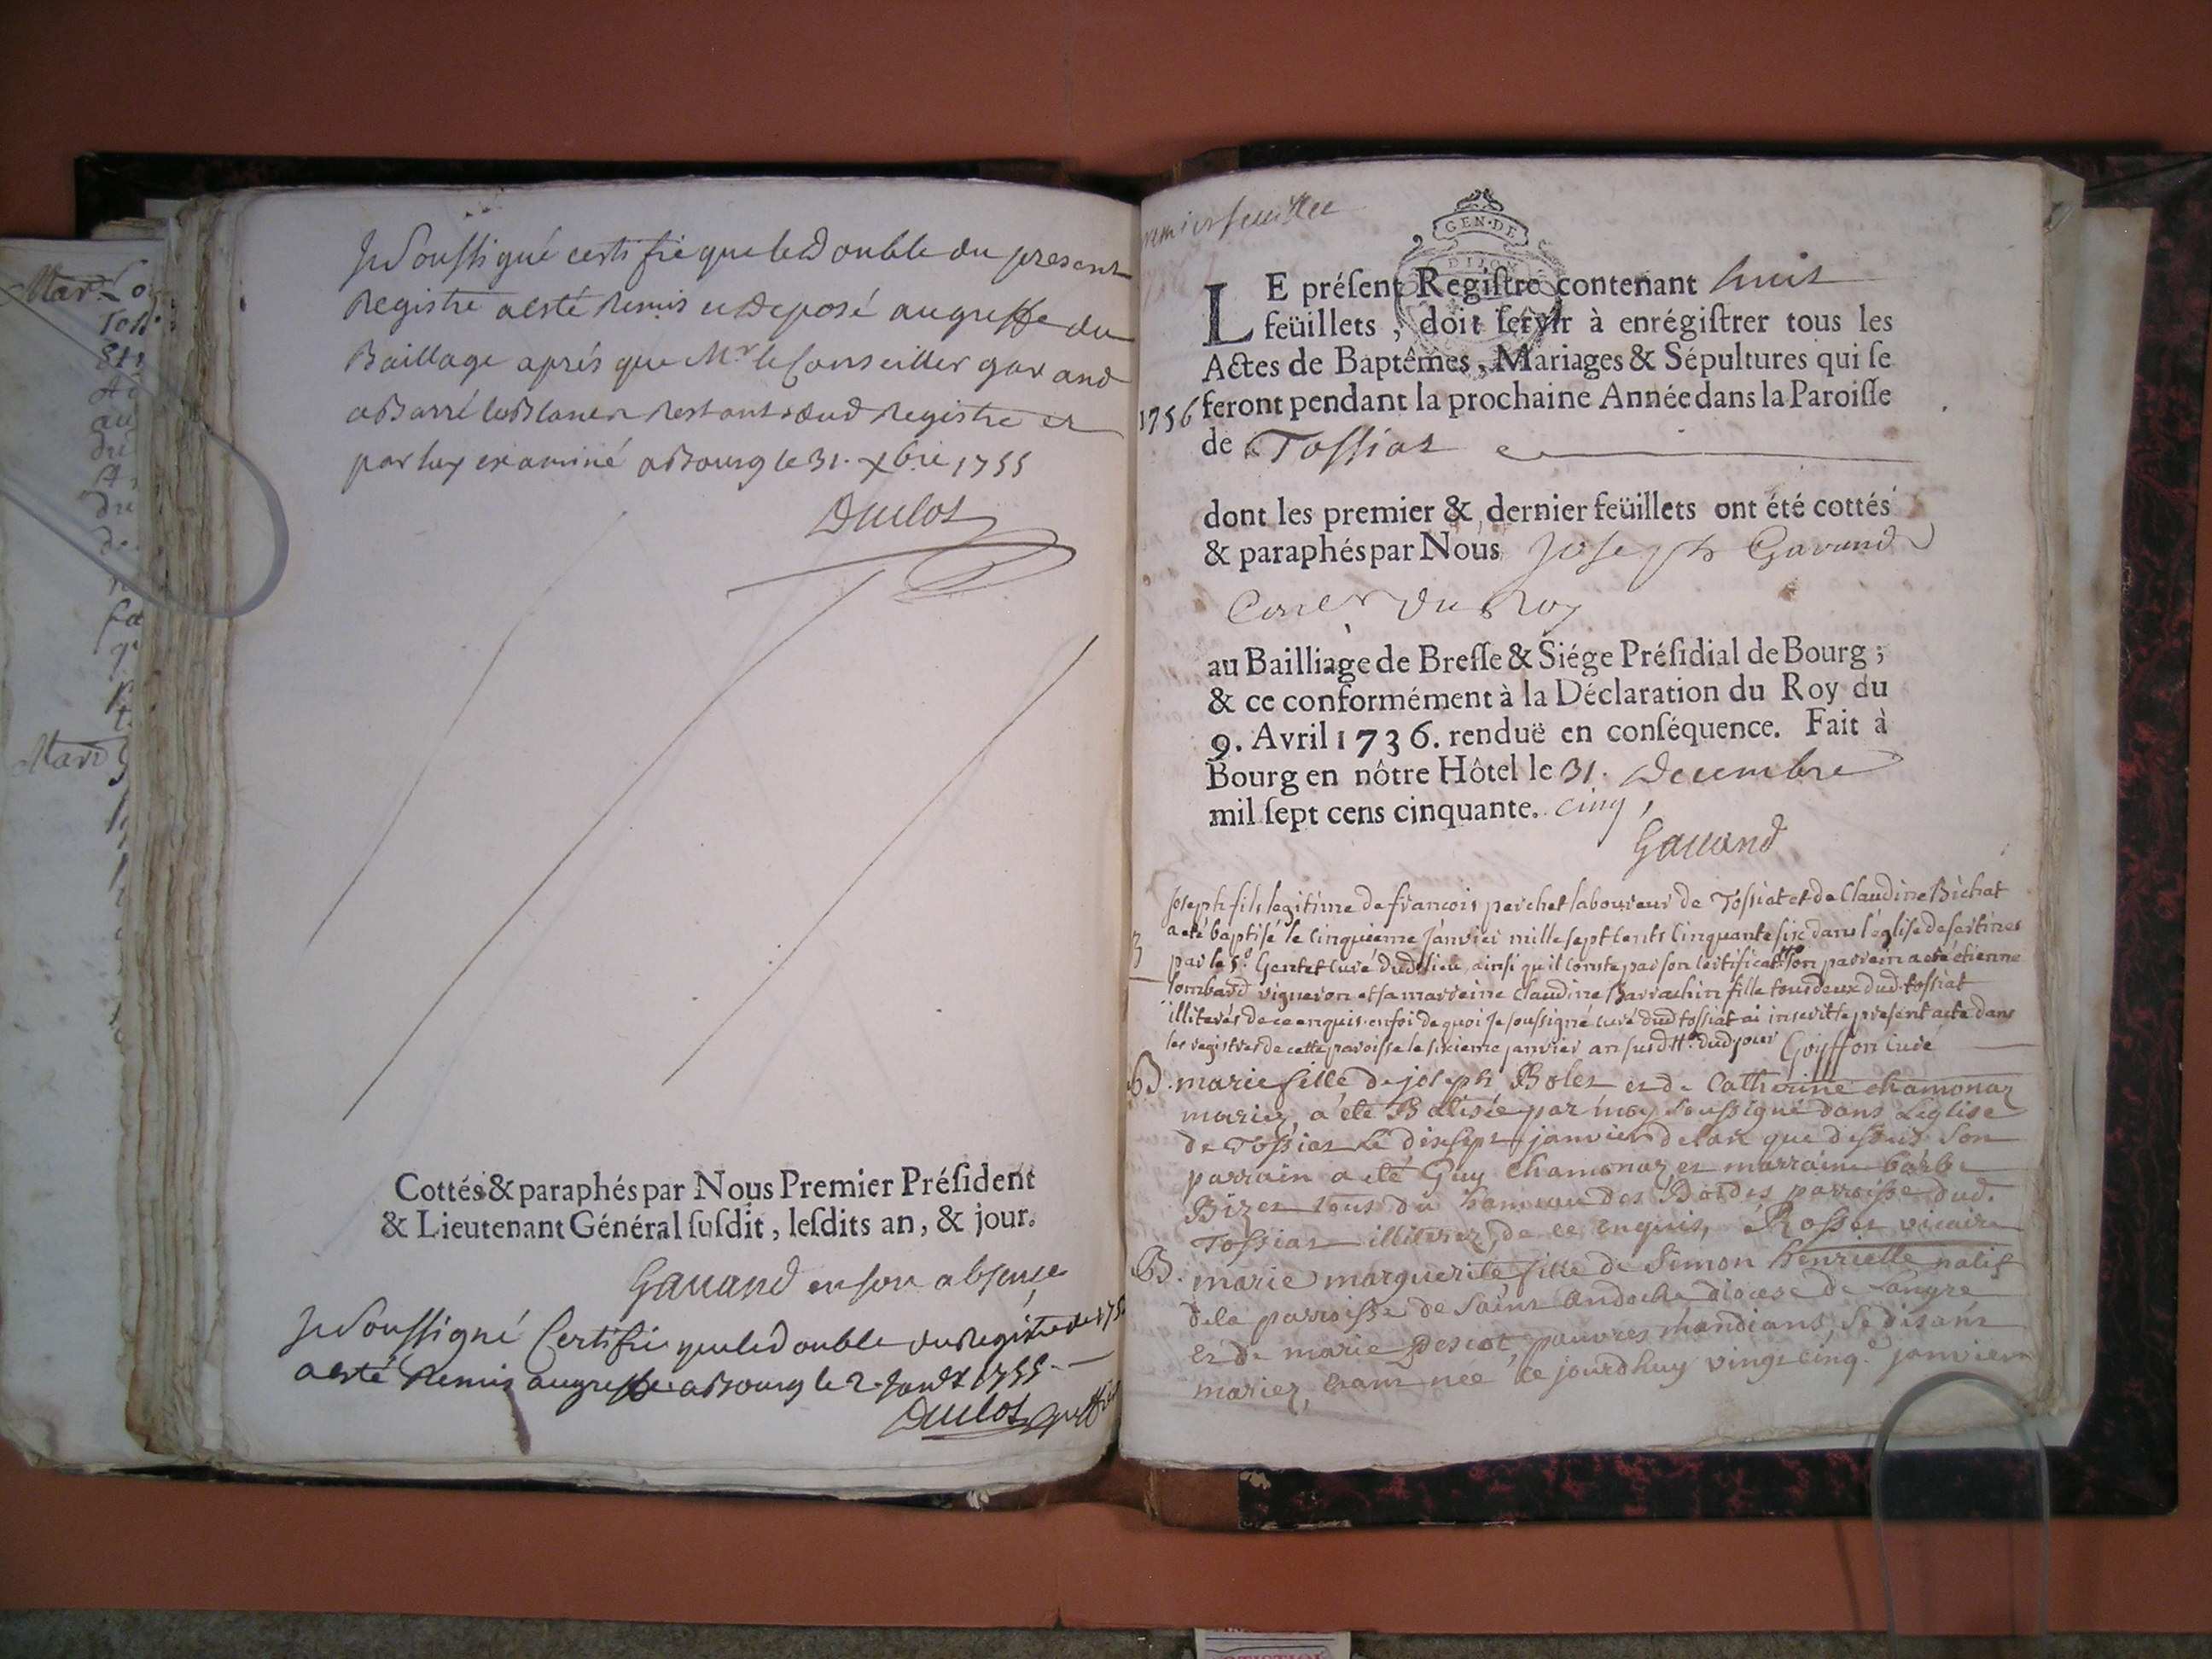 Je Soussigné certifie que le Double du present
Registre a esté Remis et Deposé au greffe du
Baillage aprés que Mr le Conseiller gavand
a Barré les Blancs Restants dud Registre et
par luy examiné a Bourg le 31. xbre 1755
Duclos
Cottés & paraphés par Nous Premier Préſident
& Lieutenant Général ſuſdit, leſdits an, & jour.
Gauand en son absence
Je Soussigné Certifie que le Double du Registre de
a esté Remis au greffe a Bourg le 2. 1755.
Duclos
premier feuillet
GEN. DE
DIJON
LE préſent Regiſtre contenant huit
feüillets, doit ſervir à enrégiſtrer tous les
Actes de Baptêmes, Mariages & Sépultures qui ſe
1756 feront pendant la prochaine Année dans la Paroiſſe
de Tossiat
dont les premier & dernier feüillets ont été cottés
& paraphés par Nous Joseph Gavand
Coner du Roy
au Bailliage de Breſſe & Siége Préſidial de Bourg;
& ce conformément à la Déclaration du Roy du
9. Avril 1736. renduë en conſéquence. Fait à
Bourg en nôtre Hôtel le 31. Decembre
mil ſept cens cinquante. cinq,
Gauand
Joseph fils légitime de francois perchet laboureur de Tossiat et de Claudine Bichat
a eté baptisé le cinquieme Janvier mille sept cents cinquante six dans l'église de sertines
B par le Sr Gentet curé dud lieu, ainsi qu'il conste par son certificat. son parrein a eté étienne
lombard vigneron et sa marreine Claudine Barrachin fille tous deux dud. tossiat
illiterés de ce enquis. en foi de quoi Je soussigné curé dud tossiat ai inscrit le présent acte dans
les registres de cette paroisse le sixieme janvier an susd dud jour Goyffon curé
B. marie fille de joseph Bolet et de Catherine chamonaz
mariez, a été Batisée par moy soussigné dans Léglise
de Tossiat Le dixsept janvier de lan que dessus Son
parrain a eté Guy Chamonaz et marraine barbe
Bizet tous du hameau des Bordes parroisse dud.
Tossiat illiterez, de ce enquis, Rosset vicaire
B. marie marguerite fille de Simon henrielle natif
de la parroisse de Saint andoche diocese de Langre
et de marie pescot, pauvres mandians, se disant
mariez, etant née ce jourdhuy vingt cinq.e janvier